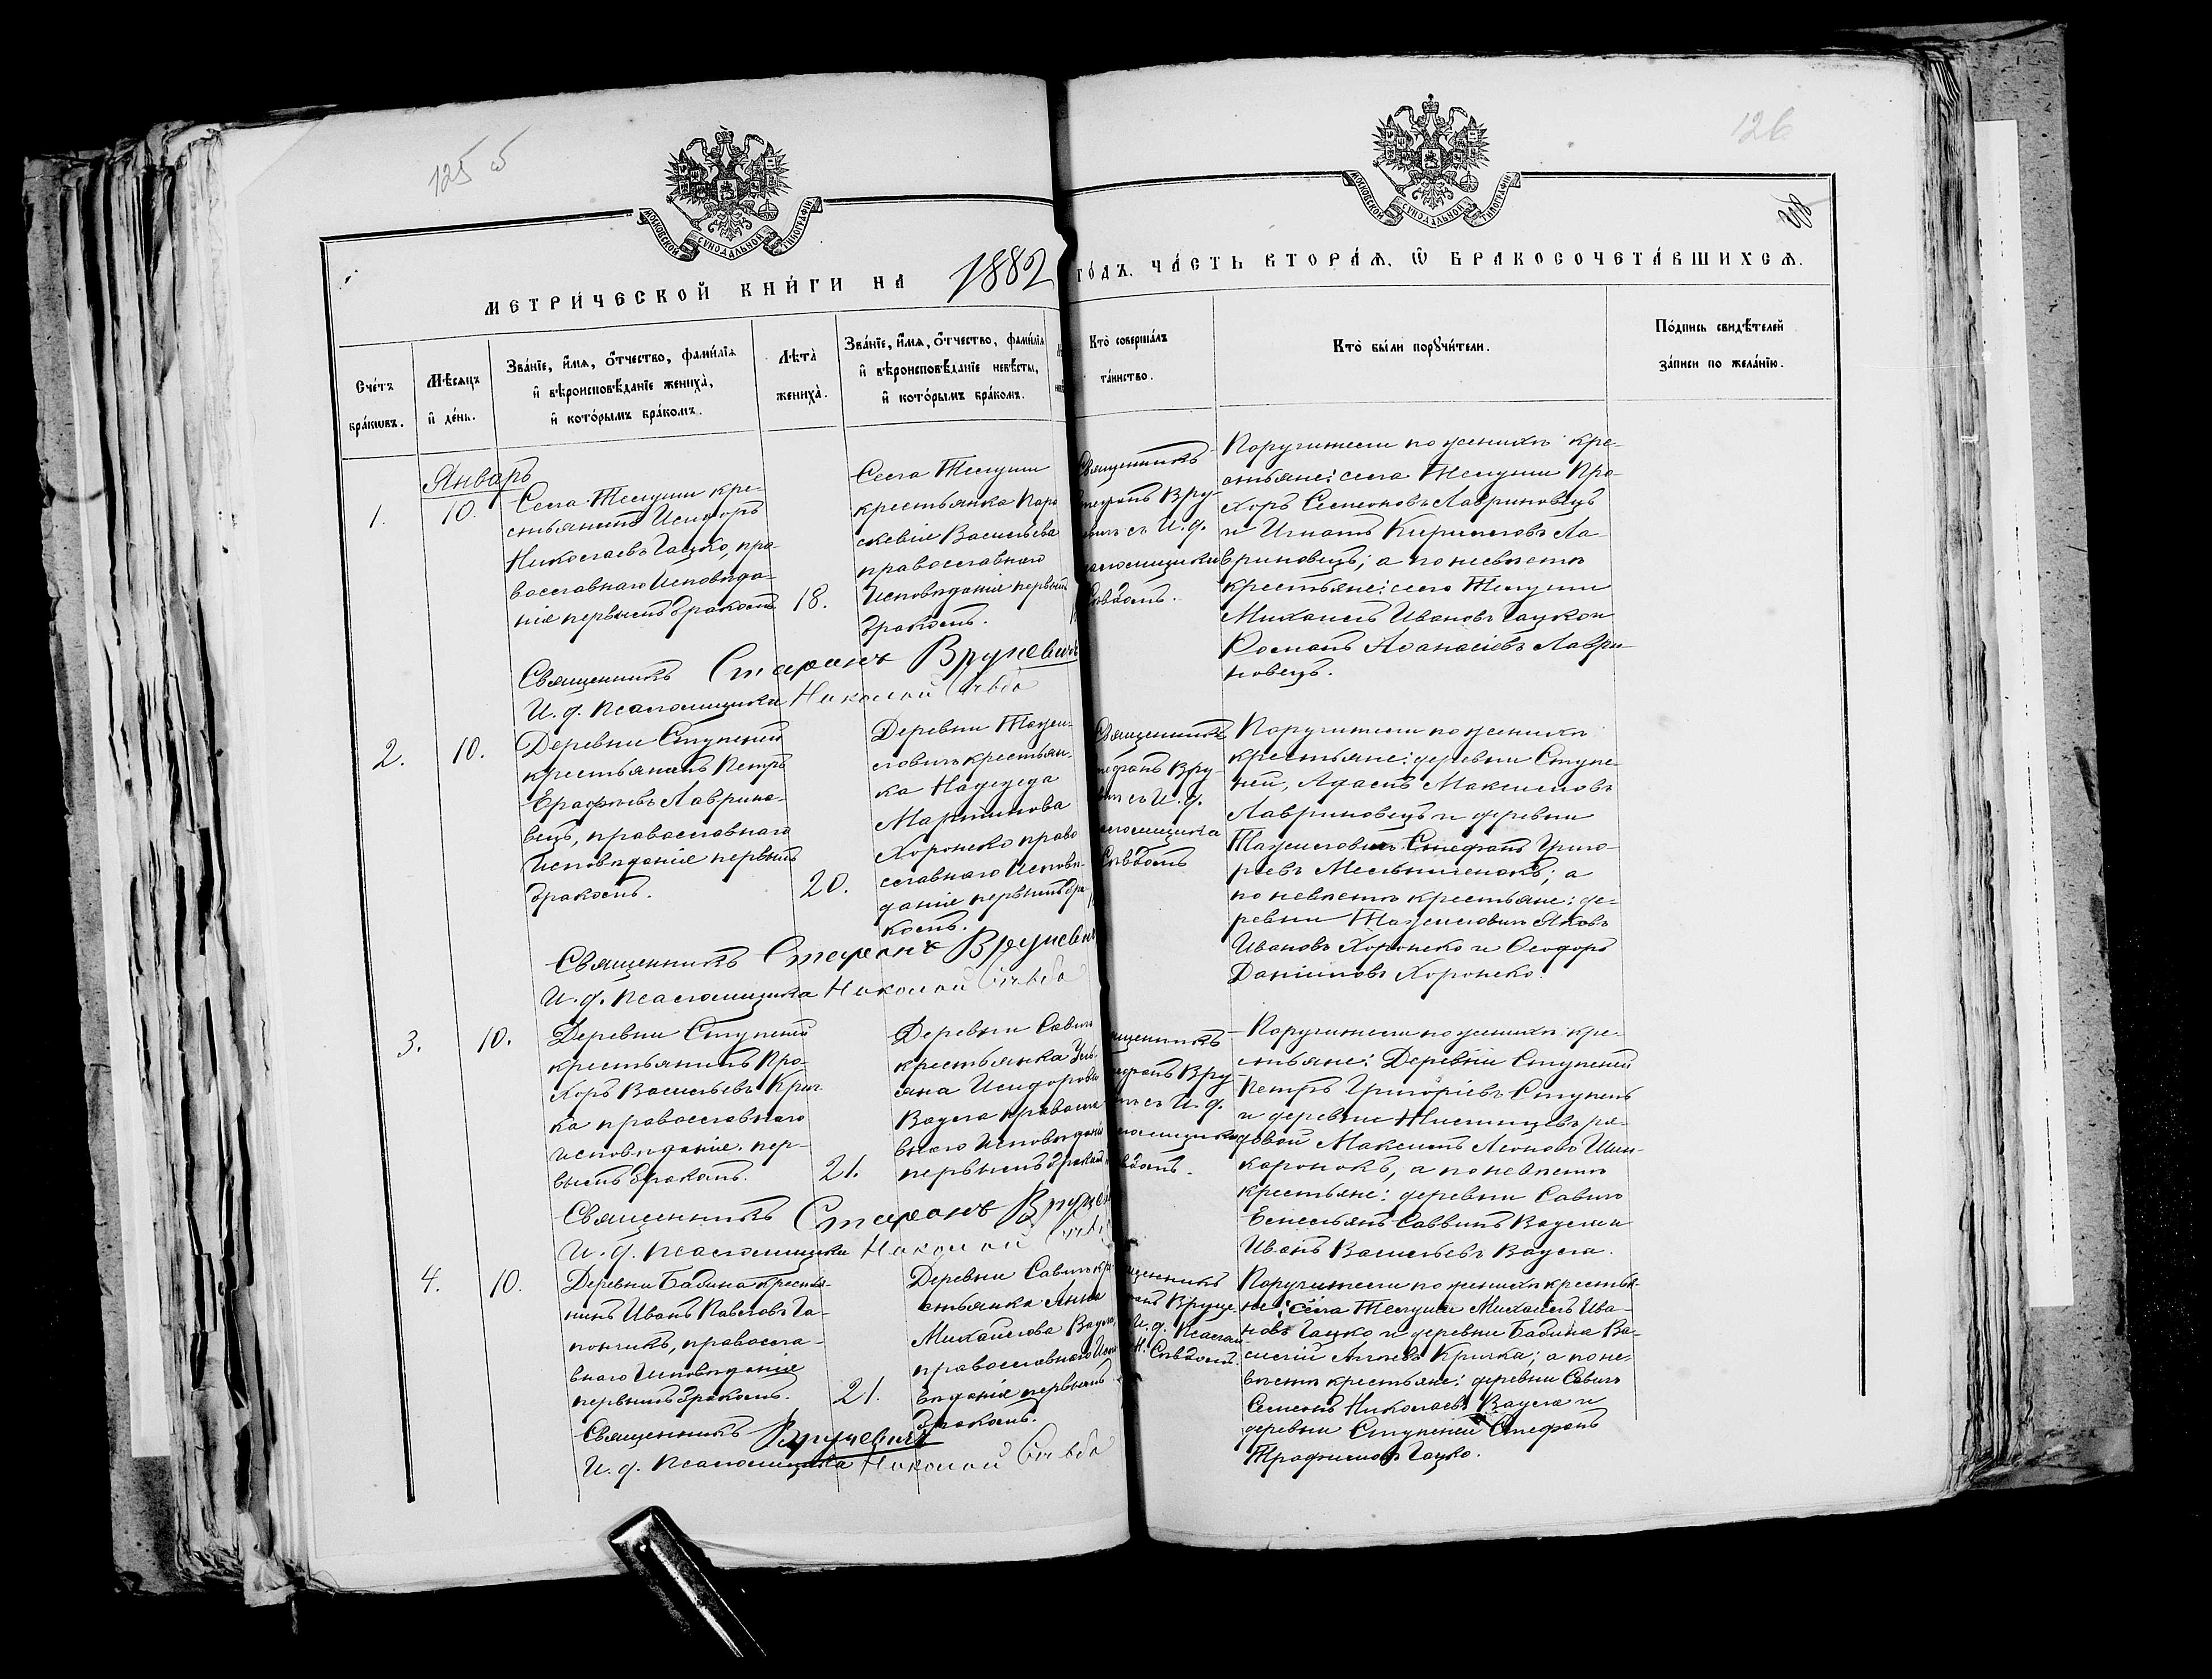 125 об
126
МОСКОВСКОЙ СУНОДАЛЬНОЙ ТИПОГРАФІИ
МОСКОВСКОЙ СУНОДАЛЬНОЙ ТИПОГРАФІИ
МЕТРИ́ЧЕСКОЙ КНИ́ГИ НА 1882
ГО́ДЪ. ЧА́СТЬ ВТОРА́Ѧ, Ѽ БРАКОСОЧЕТА́ВШИХСѦ.
Сче́тъ
бра́кωвъ.
Мѣ́сѧцъ
и҆ де́нь.
Зва́нїе, и҆́мѧ, ѻ҆́тчество, фами́лїѧ
и҆ вѣроисповѣ́данїе жениха̀,
и҆ кото́рымъ бра́комъ.
Лѣта̀
жениха̀.
Зва́нїе, и҆́мѧ, ѻ҆́тчество, фами́лїѧ
и҆ вѣроисповѣ́данїе невѣ́сты,
и҆ кото́рымъ бра́комъ.
Кто̀ соверша́лъ
та́инство.
Кто̀ бы́ли порꙋчи́тели.
По́дпись свидѣ́телей
за́писи по жела́нїю.
Январь
1.
10.
Села Телуши кре-
стьянинъ Исидоръ
Николаевъ Гацко, пра-
вославнаго Исповѣда-
нія первымъ бракомъ
18.
Села Телуши
крестьянка Пара
скевія Васильева
православнаго
Исповѣданія первымъ
бракомъ.
Священникъ
Стефанъ Вру-
съ И. д.
псаломщика
Сывдомъ.
Поручители по женихѣ кре-
стьяне: села Телуши Про
хоръ Семеновъ Лавриновецъ
и Игнатъ Кириловъ Ла
вриновецъ; а по невѣстѣ
крестьяне: села Телуши
Михаилъ Ивановъ Гацко и
Романъ Аѳанасіевъ Лаври-
новецъ.
Священникъ Стефанъ Вручевичъ
И. д. Псаломщика Николай
2.
10.
Деревни Ступеней
крестьянинъ Петръ
Ерофѣевъ Лаврино-
вецъ, православнаго
Исповѣданія первымъ
бракомъ.
20.
Деревни Тажи-
ловичъ крестьян-
ка Надежда
Мартинова
Хоронеко право
славнаго Исповѣ-
данія первымъ бра
комъ.
Священникъ
Стефанъ Вру-
съ И. д.
псаломщика
Поручители по женихѣ
крестьяне: деревни Ступе
ней, Адамъ Максимовъ
Лавриновецъ и деревни
Тажиловичъ Стефанъ Григо-
ріевъ Мельниченокъ; а
по невѣстѣ крестьяне: де-
ревни Тажиловичъ Яковъ
Ивановъ Хоронеко и Ѳеодоръ
Даніиловъ Хоронеко.
Священникъ Стефанъ Вручевичъ
И. д. Псаломщика Николай
3.
10.
Деревни Ступеней
крестьянинъ Про-
хоръ Васильевъ Крич
ка православнаго
исповѣданія. пер-
вымъ бракомъ.
21.
Деревни Савичъ
крестьянка Уль-
яна Исидорова
Важела правосла
внаго Исповѣданія
первымъ бракомъ
Священникъ
Стефанъ Вру
съ И. д.
псаломщика
Поручители по женихѣ кре-
стьяне: Деревни Ступеней
Петръ Григоріевъ Ступень
и деревни ря-
довой Максимъ Леоновъ Шин-
каронокъ, а по невѣстѣ
крестьяне: деревни Савичъ
Емельянъ Саввинъ Важела и
Иванъ Васильевъ Важела.
Священникъ Стефанъ
И. д. Псаломщика Николай
4.
10.
Деревни Бабина крестья-
нинъ Иванъ Павловъ Га-
пончикъ, правосла-
внаго Исповѣданія
первымъ бракомъ.
21.
Деревни Савичъ кре-
стьянка Анна
Михайлова Важела,
православнаго Испо
вѣданія первымъ
бракомъ.
Священникъ
Вруче
И. д. Псалом
Н.
Поручители по женихѣ крестья-
не: села Телуши Михаилъ Ива-
новъ Гацко и деревни Бабина Ва-
силій Кричка; а по не-
вѣстѣ крестьяне: деревни Савичъ
Семенъ Николаевъ Важела и
деревни Ступеней Стефанъ
Трофимовъ Гацко.
Священникъ Вручевичъ
И. д. Псаломщика Николай